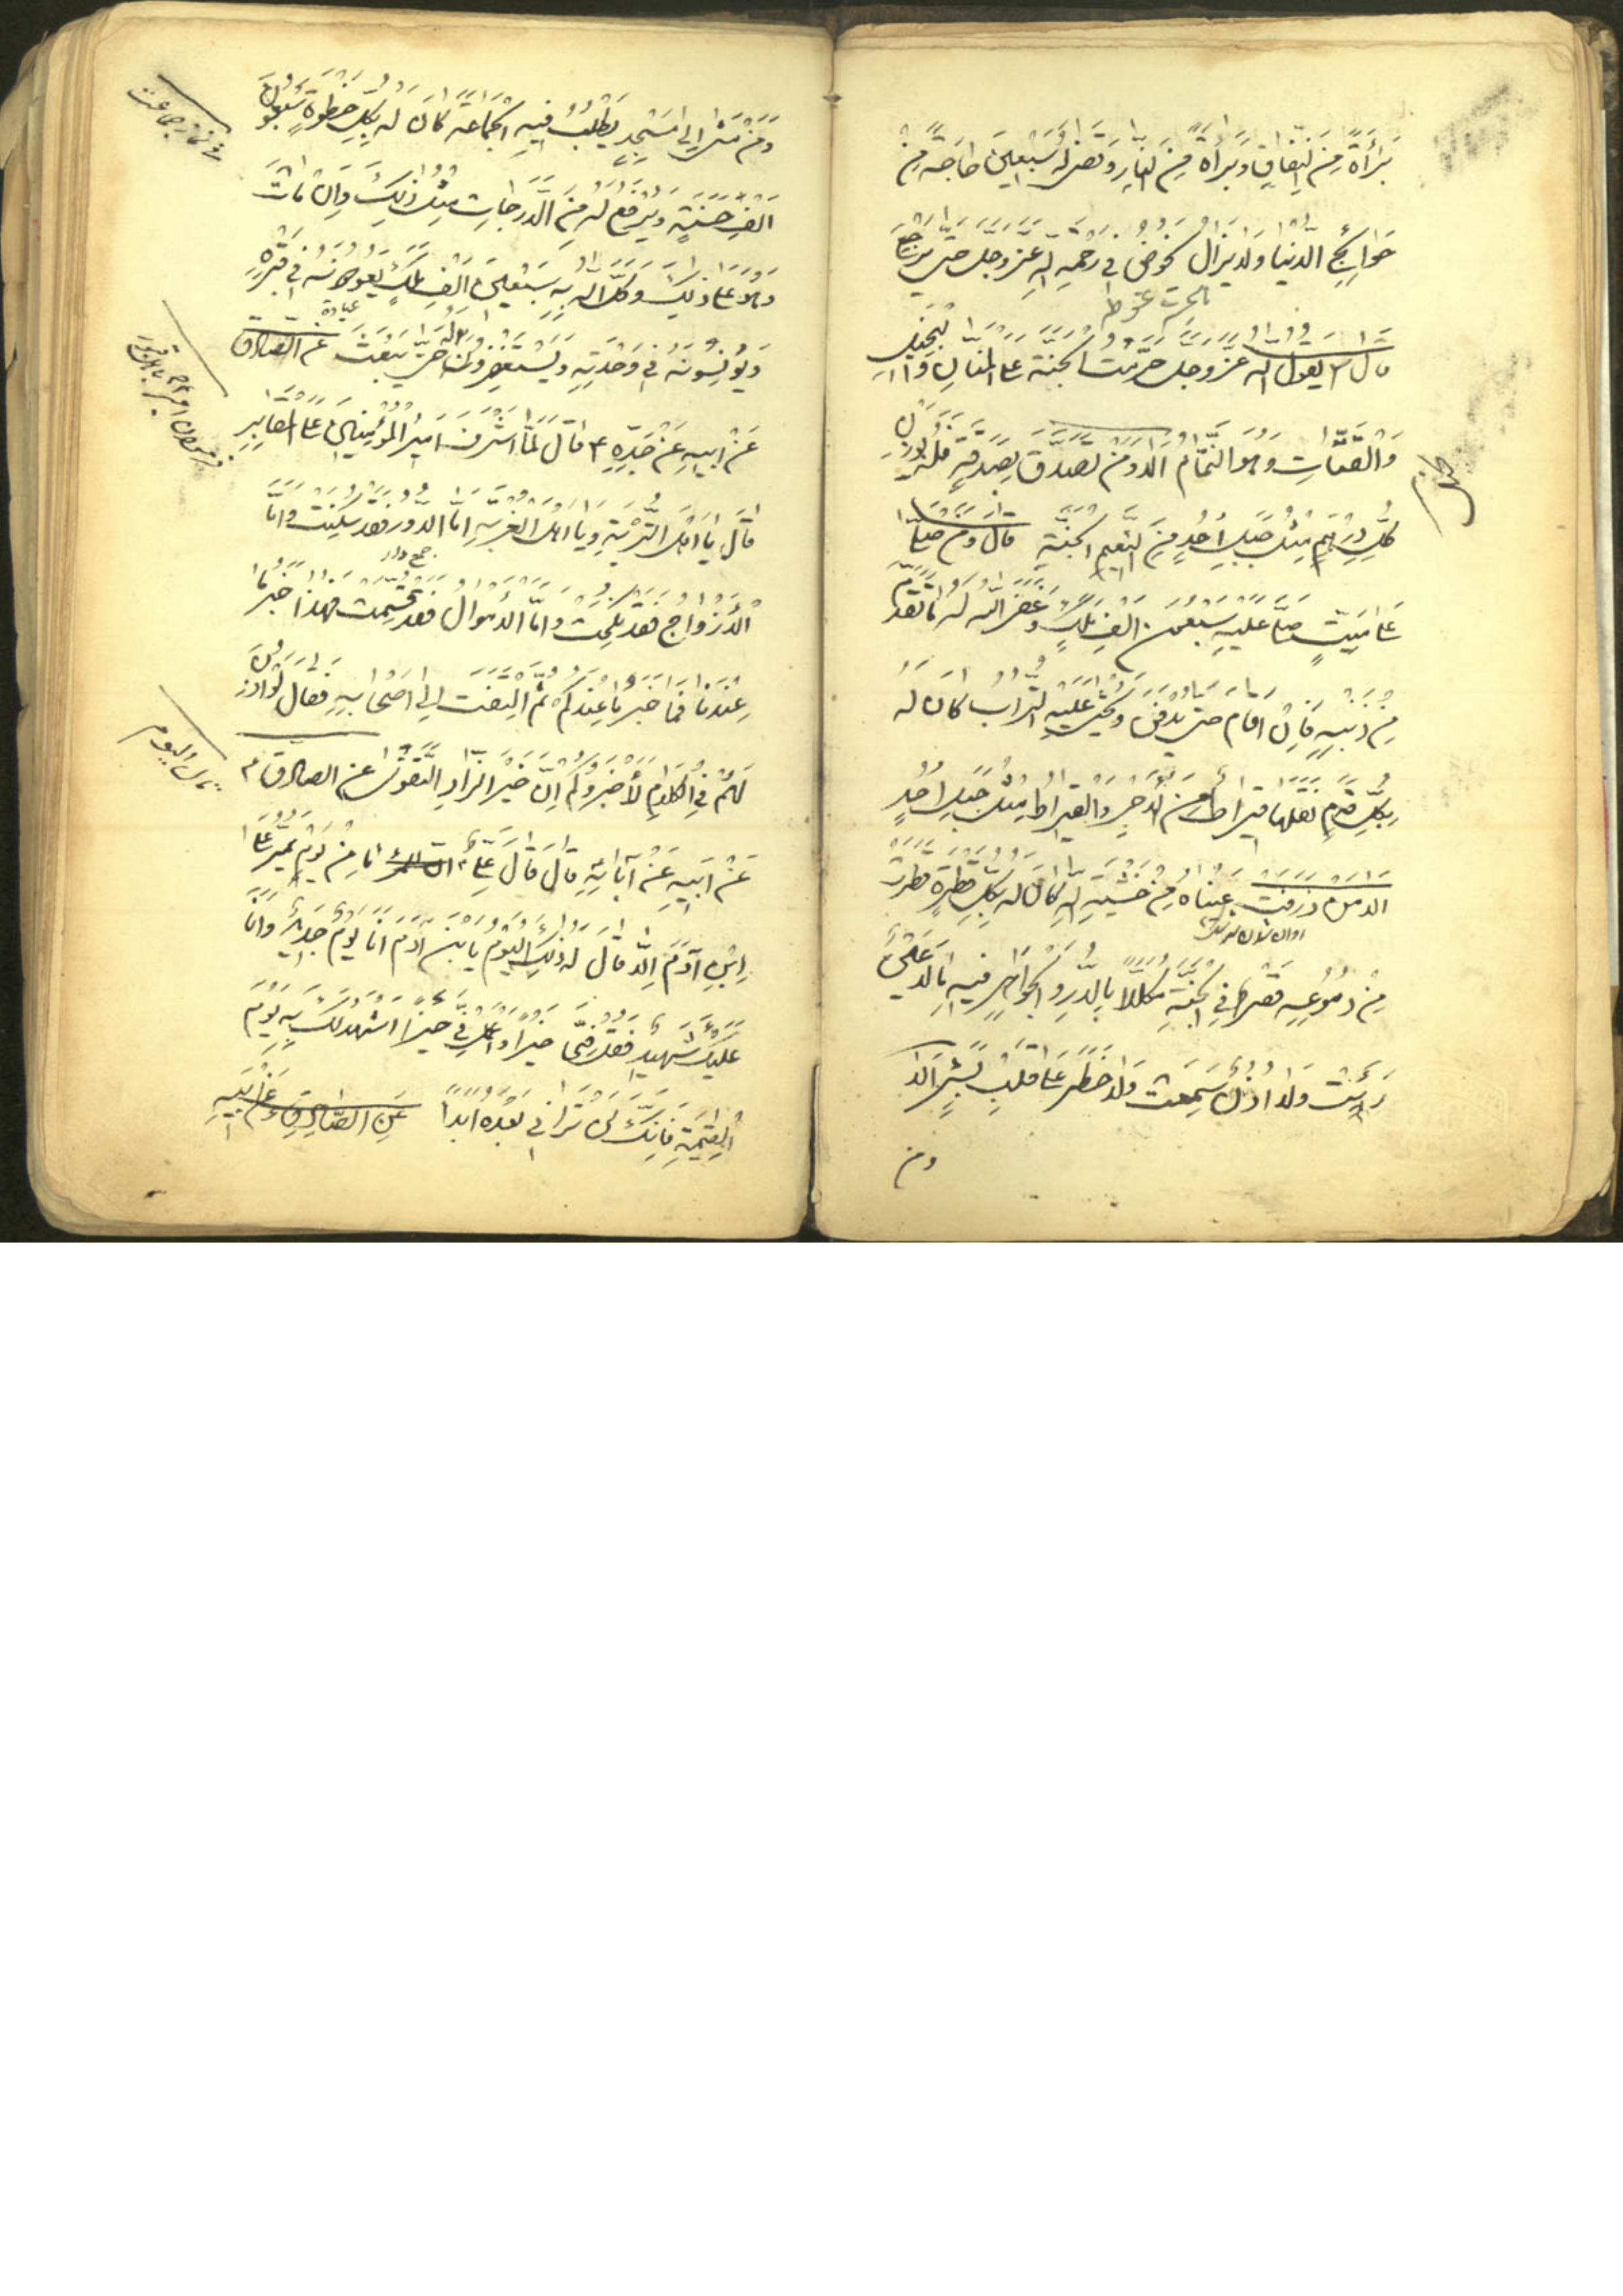 بَرَاءَةً مِنَ النِّفَاقِ وَبَرَاءَةً مِنَ النَّارِ وَتُقْضٰى لَهُ سَبْعِينَ حَاجَةً مِنْ
حَوَائِجِ الدُّنْيَا وَلَا يَزَالُ يَخُوضُ فِي رَحْمَةِ اللهِ عَزَّ وَجَلَّ حَتّٰى يَرْجِعَ
قَالَ يَقُولُ اللهُ عَزَّ وَجَلَّ حُرِّمَتِ الْجَنَّةُ عَلَى الْمَنَّانِ وَالْبَخِيلِ
وَالْقَتَّاتِ وَهُوَ النَّمَّامُ اَلَا وَمَنْ تَصَدَّقَ بِصَدَقَةٍ فَلَهُ بِوَزْنِ
كُلِّ دِرْهَمٍ مِثْلُ جَبَلِ اُحُدٍ مِنْ نَعِيمِ الْجَنَّةِ قَالَ وَمَنْ صَلّٰى
عَلٰى مَيِّتٍ صَلّٰى عَلَيْهِ سَبْعُونَ اَلْفَ مَلَكٍ وَغَفَرَ اللهُ لَهُ مَا تَقَدَّمَ
مِنْ ذَنْبِهِ فَاِنْ اَقَامَ حَتّٰى يُدْفَنَ وَيُحْثٰى عَلَيْهِ التُّرَابُ كَانَ لَهُ
بِكُلِّ قَدَمٍ نَقَلَهَا قِيرَاطٌ مِنَ الْاَجْرِ وَالْقِيرَاطُ مِثْلُ جَبَلِ اُحُدٍ
اَلَا وَمَنْ ذَرَفَتْ عَيْنَاهُ مِنْ خَشْيَةِ اللهِ كَانَ لَهُ بِكُلِّ قَطْرَةٍ قَطَرَتْ
مِنْ دُمُوعِهِ قَصْرٌ فِي الْجَنَّةِ مُكَلَّلًا بِالدُّرِّ وَالْجَوَاهِرِ فِيهِ مَا لَا عَيْنٌ
رَأَتْ وَلَا اُذُنٌ سَمِعَتْ وَلَا خَطَرَ عَلٰى قَلْبِ بَشَرٍ اَلَا
ومن
وَمَنْ مَشٰى اِلٰى مَسْجِدٍ يَطْلُبُ فِيهِ الْجَمَاعَةَ كَانَ لَهُ بِكُلِّ خُطْوَةٍ سَبْعُونَ
اَلْفَ حَسَنَةٍ وَيُرْفَعُ لَهُ مِنَ الدَّرَجَاتِ مِثْلُ ذٰلِكَ وَاِنْ مَاتَ
وَهُوَ عَلٰى ذٰلِكَ وَكَّلَ اللهُ بِهِ سَبْعِينَ اَلْفَ مَلَكٍ يَعُودُونَهُ فِي قَبْرِهِ
وَيُونِسُونَهُ فِي وَحْدَتِهِ وَيَسْتَغْفِرُونَ لَهُ حَتّٰى يُبْعَثَ عَنِ الصَّادِقِ
عَنْ اَبِيهِ عَنْ جَدِّهِ ع قَالَ لَمَّا اَشْرَفَ اَمِيرُ الْمُؤْمِنِينَ عَلَى الْمَقَابِرِ
قَالَ يَا اَهْلَ التُّرْبَةِ وَيَا اَهْلَ الْغُرْبَةِ اَمَّا الدُّورُ فَقَدْ سُكِنَتْ وَاَمَّا
جمع دار
الْاَزْوَاجُ فَقَدْ نُكِحَتْ وَاَمَّا الْاَمْوَالُ فَقَدْ قُسِمَتْ فَهٰذَا خَبَرُ مَا
عِنْدَنَا فَمَا خَبَرُ مَا عِنْدَكُمْ ثُمَّ الْتَفَتَ اِلٰى اَصْحَابِهِ فَقَالَ لَوْ اُذِنَ
لَهُمْ فِي الْكَلَامِ لَاَخْبَرُوكُمْ اِنَّ خَيْرَ الزَّادِ التَّقْوٰى عن الصادق ع
عَنْ اَبِيهِ عَنْ آبَائِهِ قَالَ قَالَ عَلِيٌّ ع مَا مِنْ يَوْمٍ يَمُرُّ عَلَى
ابْنِ آدَمَ اِلَّا قَالَ لَهُ ذٰلِكَ الْيَوْمُ يَا بْنَ آدَمَ اَنَا يَوْمٌ جَدِيدٌ وَاَنَا
عَلَيْكَ شَهِيدٌ فَقُلْ فِيَّ خَيْرًا وَاعْمَلْ فِيَّ خَيْرًا اَشْهَدْ لَكَ بِهِ يَوْمَ
الْقِيٰمَةِ فَاِنَّكَ لَنْ تَرَانِي بَعْدَهُ اَبَدًا عَنِ الصَّادِقِ عَنْ اَبِيهِ
در نماز جماعت